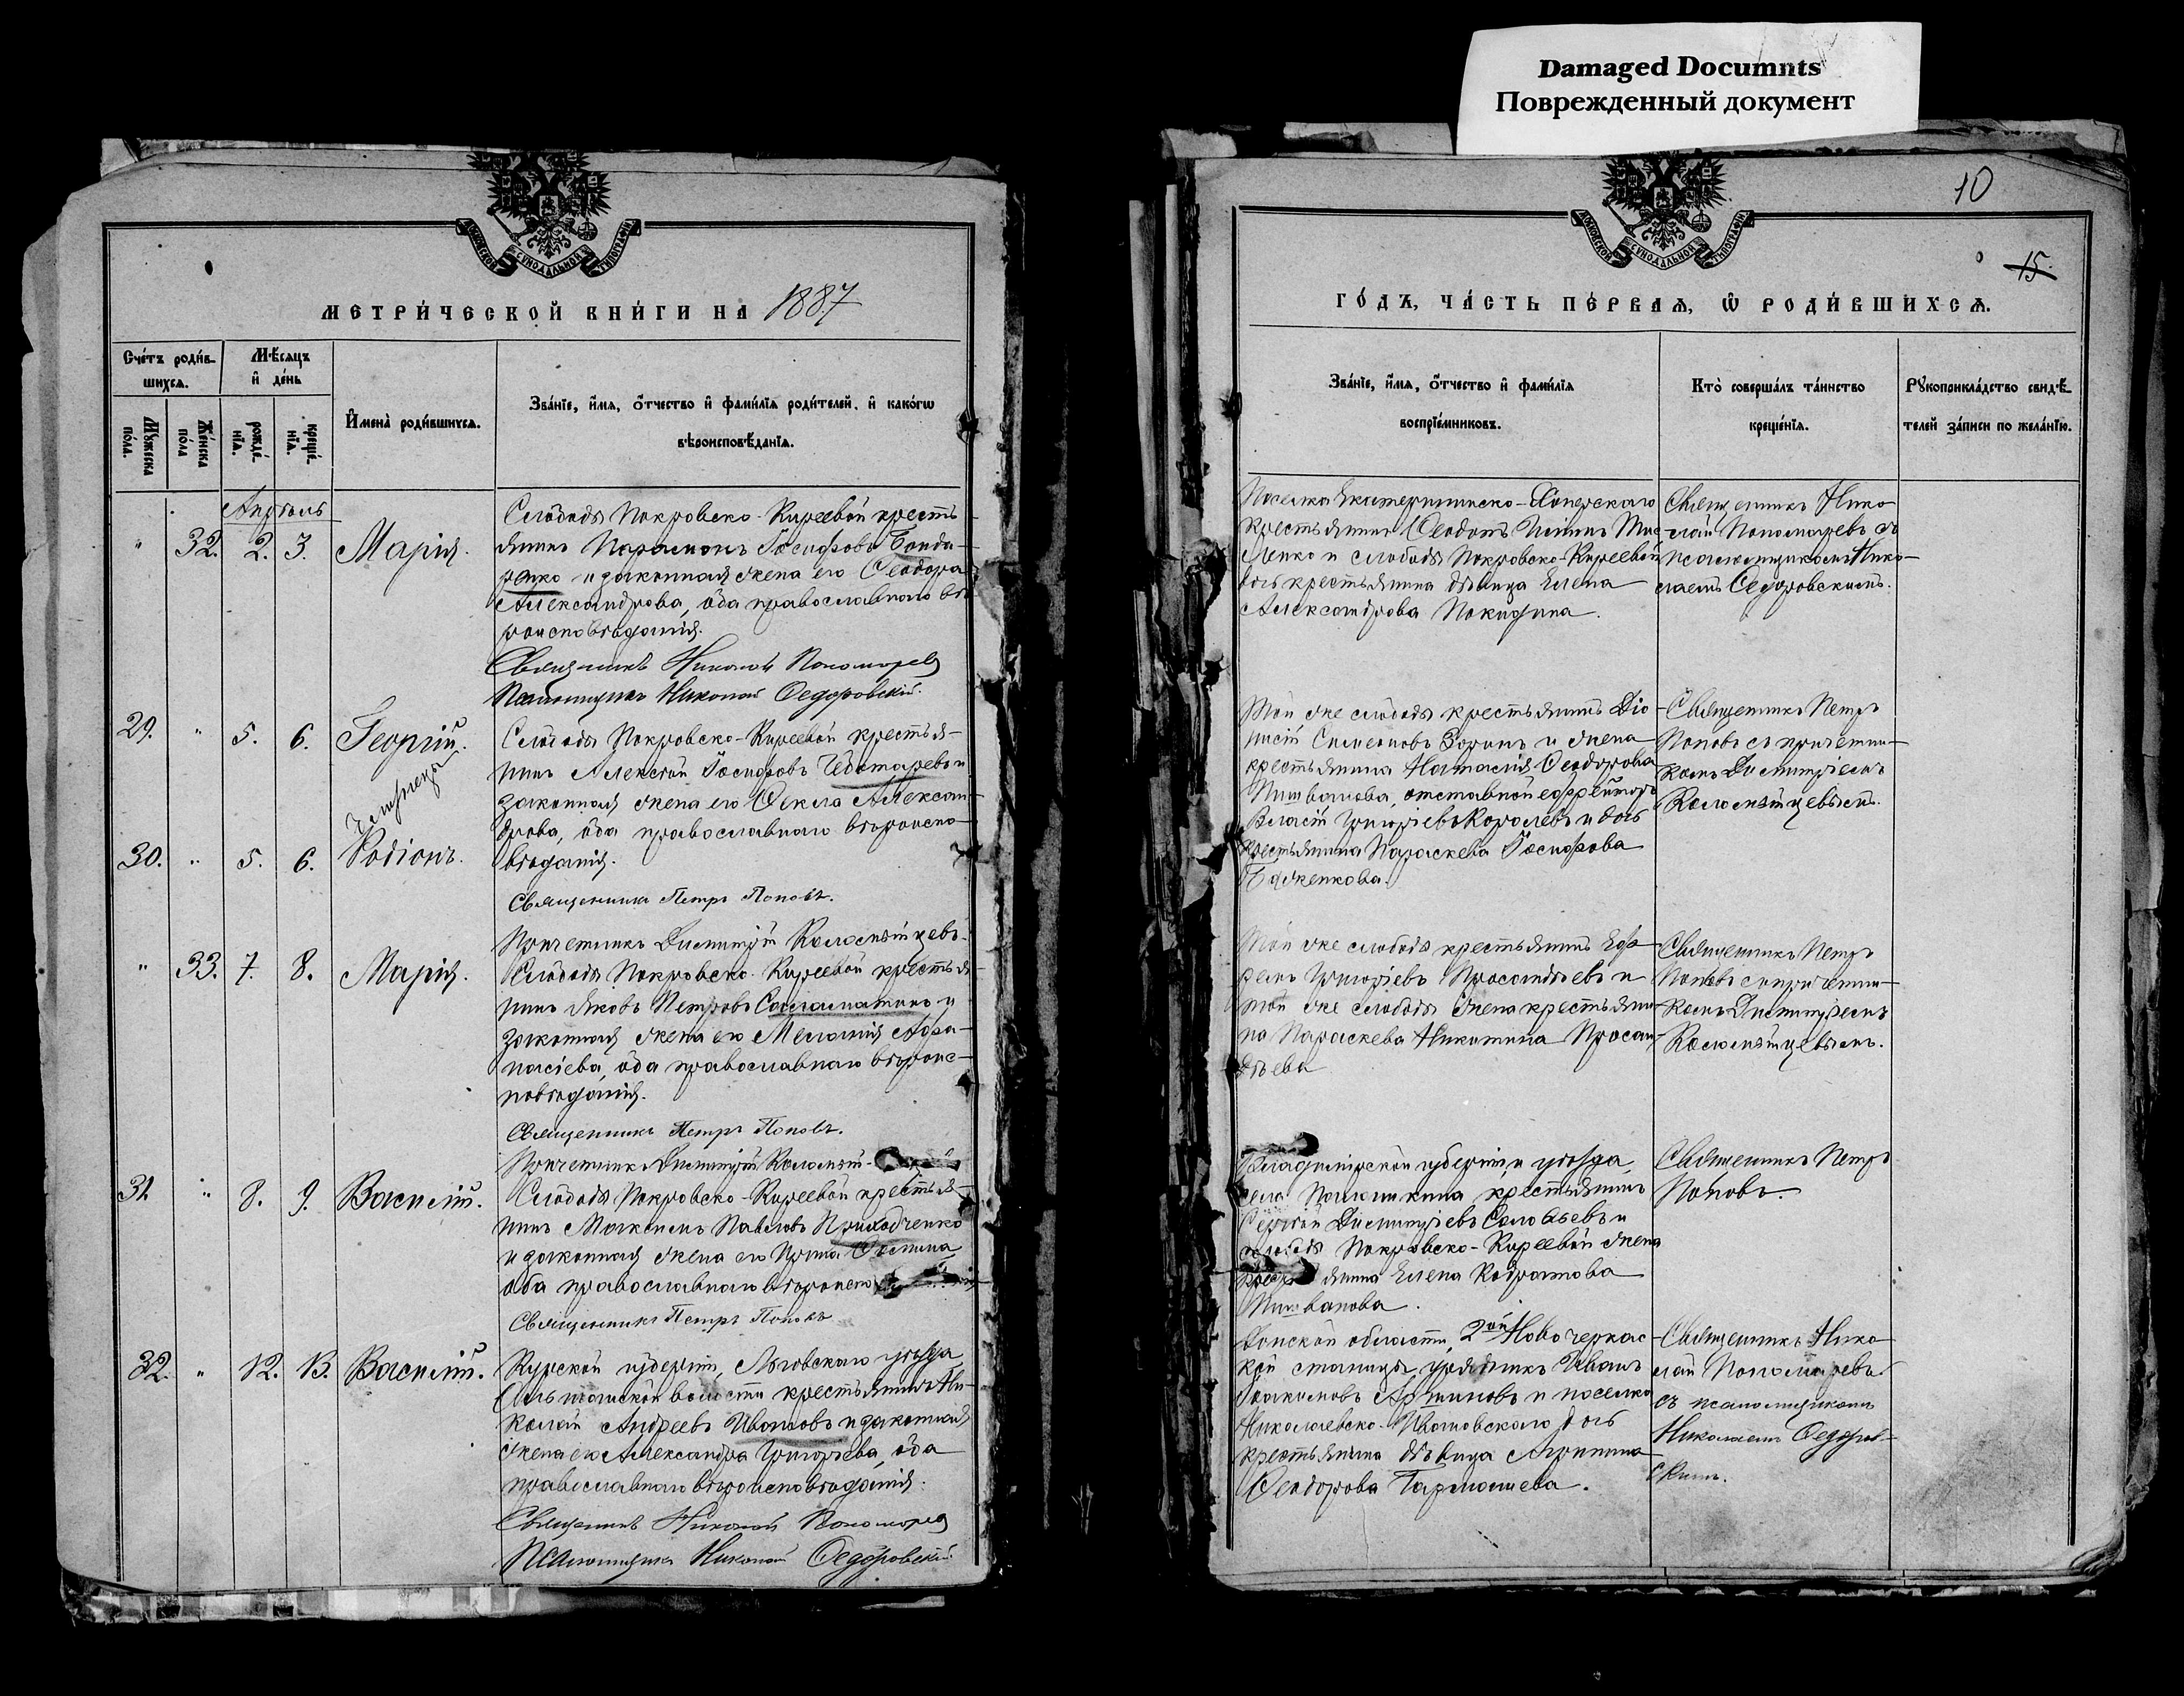 Damaged Documnts
Поврежденный документ
МОСКОВСКОЙ СѴНОДАЛЬНОЙ ТИПОГРАФІИ
МЕТРИ́ЧЕСКОЙ КНИ́ГИ НА 1887
Сче́тъ роди́в-
шихся.
Мѣ́сяцъ
и҆ де́нь
Мꙋ́жеска
по́ла.
Же́нска
по́ла
рожде́-
нїя.
креще́-
нїя.
И҆мена̀ роди́вшихся.
Зва́нїе, и҆́мя, ѻ҆́тчество и҆ фами́лїя роди́телей, и҆ како́гѡ
вѣроисповѣ́данїя.
Апрѣль
" 32. 2. 3. Марія.
Слободы Покровско-Киреевой кресть-
янинъ Парамонъ Іосифовъ Бонда-
ренко и законная жена его Ѳеодора
Александрова, оба православнаго вѣ-
роисповѣданія.
Священникъ Николай Пономаревъ
Псаломщикъ Николай Ѳедоровскій.
29. " 5. 6. Георгій.
близнецы
30. " 5. 6. Родіонъ.
Слободы Покровско-Киреевой крестья-
нинъ Алексѣй Іосифовъ Чеботаревъ и
законная жена его Ѳекла Алексан-
дрова, оба православнаго вѣроиспо-
вѣданія.
Священникъ Петръ Поповъ.
Причетникъ Димитрій Коломѣйцевъ.
" 33. 7. 8. Марія.
Слободы Покровско-Киреевой крестья-
нинъ Яковъ Петровъ Саламатинъ и
законная жена его Меланія Аѳа-
насіева, оба православнаго вѣроис-
повѣданія.
Священникъ Петръ Поповъ.
Причетникъ Димитрій Коломѣй-
31 " 8. 9. Василій.
Слободы Покровско-Киреевой крестья-
нинъ Максимъ Павловъ Приходченко
и законная жена его Ирина Ѳомина
оба православнаго вѣроиспо
Священникъ Петръ Поповъ
32. " 12. 13. Василій.
Курской губерніи, Льговскаго уѣзда
волости крестьянинъ Ни-
колай Андреевъ Ивановъ и законная
жена его Александра Григорьева, оба
православнаго вѣроисповѣданія.
Священникъ Николай Пономаревъ
Псаломщикъ Николай Ѳедоровскій.
10
15.
МОСКОВСКОЙ СѴНОДАЛЬНОЙ ТИПОГРАФІИ
ГО́ДЪ, ЧА́СТЬ ПЕ́РВАЯ, Ѽ РОДИ́ВШИХСЯ.
Зва́нїе, и҆́мя, ѻ҆́тчество и҆ фами́лїя
воспрїе́мниковъ.
Кто̀ соверша́лъ та́инство
креще́нїя.
Рꙋкоприкла́дство свидѣ́-
телей за́писи по жела́нїю.
Поселка Екатерининско-Хоперскаго
крестьянинъ Ѳеодотъ
и слободы Покровско-Киреевой
дочь крестьянина дѣвица Елена
Александрова
Священникъ Нико-
лай Пономаревъ съ
псаломщикомъ Нико-
лаемъ Ѳедоровскимъ.
Той же слободы крестьянинъ Діо-
нисій Симеоновъ Зоринъ и жена
крестьянина Наталія Ѳеодорова
отставной ефрейторъ
Власій Григорьевъ Королевъ и дочь
крестьянина Параскева Іосифова
Баженкова.
Священникъ Петръ
Поповъ съ причетни-
комъ Димитріемъ
Коломѣйцевымъ.
Той же слободы крестьянинъ Еф-
ремъ Григорьевъ Просандѣевъ и
той же слободы жена крестьяни-
на Параскева Никитина Просан-
дѣева
Священникъ Петръ
Поповъ съ причетни-
комъ Димитріемъ
Коломѣйцевымъ.
Владимірской губерніи и уѣзда,
села крестьянинъ
Сергій Димитріевъ Соловьевъ и
слободы Покровско-Киреевой жена
крестьянина Елена Кодратова
Священникъ Петръ
Поповъ.
Донской области, 2ой Новочеркас-
кой станицы, урядникъ Иванъ
Іоакимовъ и поселка
Николаевско-Ивановскаго дочь
крестьянина дѣвица Агрипина
Ѳеодорова Гармашева.
Священникъ Нико-
лай Пономаревъ
съ псаломщикомъ
Николаемъ Ѳедоров-
скимъ.